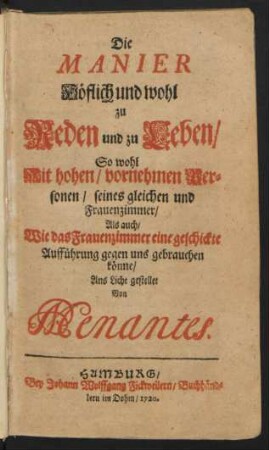 Die
MANIER
Höflich und wohl
zu
Reden und zu Leben/
So wohl
Mit hohen/ vornehmen Per-
sonen/ seines gleichen und
Frauenzimmer/
Als auch/
Wie das Frauenzimmer eine geschickte
Aufführung gegen uns gebrauchen
könne/
Ans Licht gestellet
Von
Menantes.
HAMBURG/
Bey Johann Wolffgang Fickweilern/ Buchhänd-
lern im Dohm/ 1720.